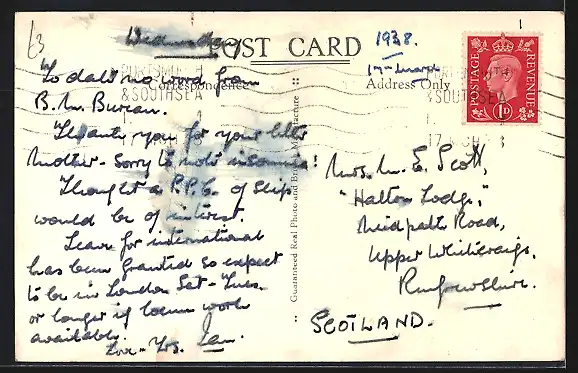 £3
Wednesday
POST CARD
1938.
17-March
Correspondence
Address Only
PORTSMOUTH
& SOUTHSEA
& SOUTHSEA
POSTAGE REVENUE
1D
To date no word from
B.M. Bureau.
Thank you for your letter
Mother - sorry to note insomnia!
Thought a P.P.C. of Ship
would be of interest.
Leave for international
has been granted so expect
to be in London Sat - Tues.
or longer if locum work
available.
Love - Yrs. Ian.
Guaranteed Real Photo and Manufacture
Mrs. M. E. Scott,
"Halton Lodge,"
Road,
Upper Whitecraigs,
Renfrewshire.
SCOTLAND.